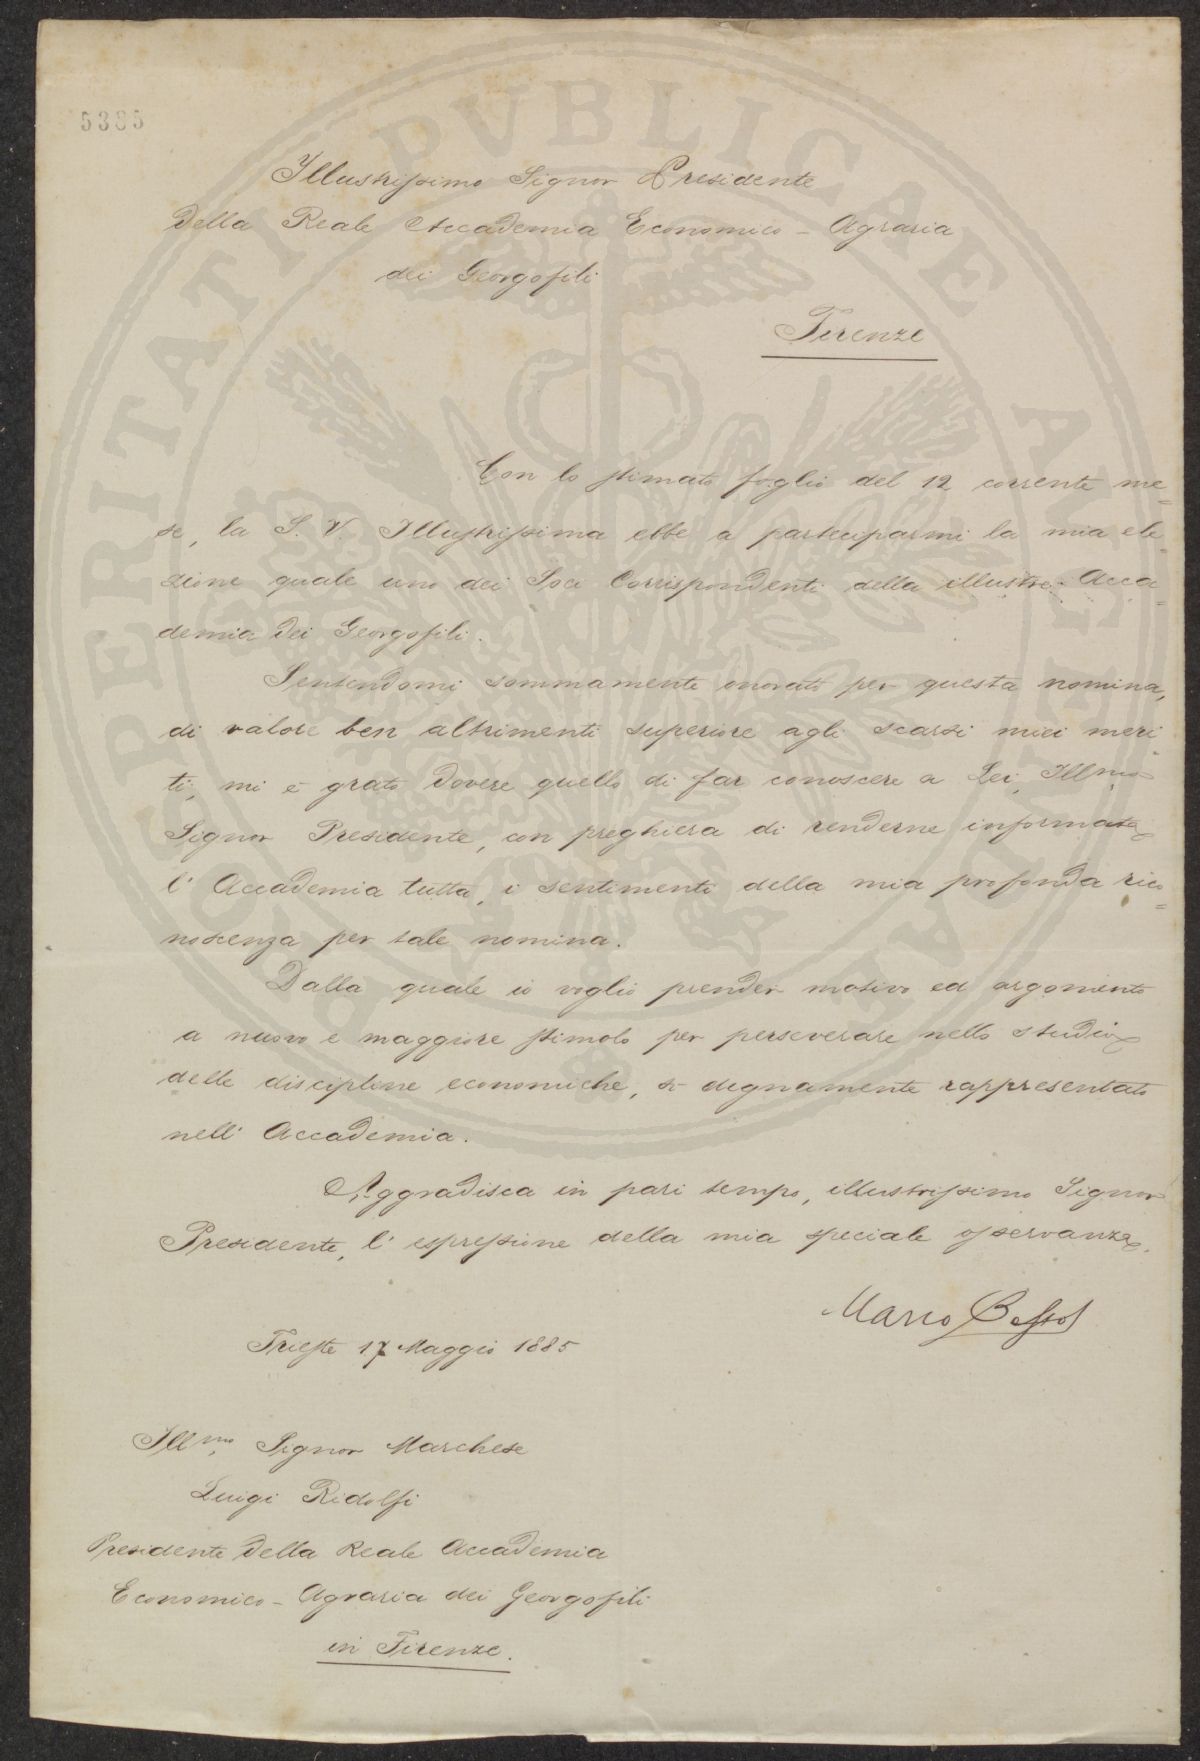 5385
Illustrissimo Signor Presidente
della Reale Accademia Economico - Agraria
dei Georgofili
Firenze
Con lo stimato foglio del 12 corrente me=
se, la S. V. Illustrissima ebbe a parteciparmi la mia ele=
zione quale uno dei Soci Corrispondenti della illustre Acca=
demia dei Georgofili.
Sentendomi sommamente onorato per questa nomina,
di valore ben altrimenti superiore agli scarsi miei meri
ti, mi è grato dovere quello di far conoscere a Lei, Illmo
Signor Presidente, con preghiera di renderne informata
l' Accademia tutta, i sentimenti della mia profonda rico=
noscenza per tale nomina.
Dalla quale io voglio prender motivo ed argomento
a nuovo e maggiore stimolo per perseverare nello studio
delle discipline economiche, sì degnamente rappresentate
nell' Accademia.
Aggradisca in pari tempo, illustrissimo Signor
Presidente, l' espressione della mia speciale osservanza.
Marco Besso
Trieste 17 Maggio 1885
Illmo Signor Marchese
Luigi Ridolfi
Presidente della Reale Accademia
Economico - Agraria dei Georgofili
in Firenze.
PROSPERITATI PVBLICAE AVGENDAE